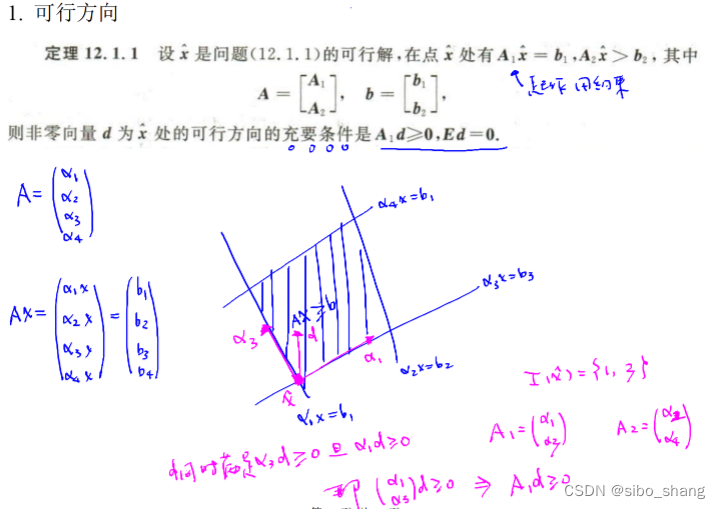 1. 可行方向
定理 12.1.1 设 x̂ 是问题(12.1.1)的可行解,在点 x̂ 处有 A₁x̂ = b₁,A₂x̂ > b₂,其中
A = [A₁ A₂], b = [b₁ b₂],
起作用约束
则非零向量 d 为 x̂ 处的可行方向的充要条件是 A₁d≥0,Ed=0.
A= (α₁ α₂ α₃ α₄)
α₄x=b₁
Ax= (α₁x α₂x α₃x α₄x) = (b₁ b₂ b₃ b₄)
α₃x=b₃
Ax≥b
α₃
d
α₁
α₂x=b₂
x̂
α₁x=b₁
I(x̂)={1, 3}
A₁=(α₁ α₂) A₂=(α₂ α₄)
d同时满足α₃d≥0 且 α₁d≥0
即 (α₁ α₃)d≥0 ⇒ A₁d≥0
CSDN @sibo_shang